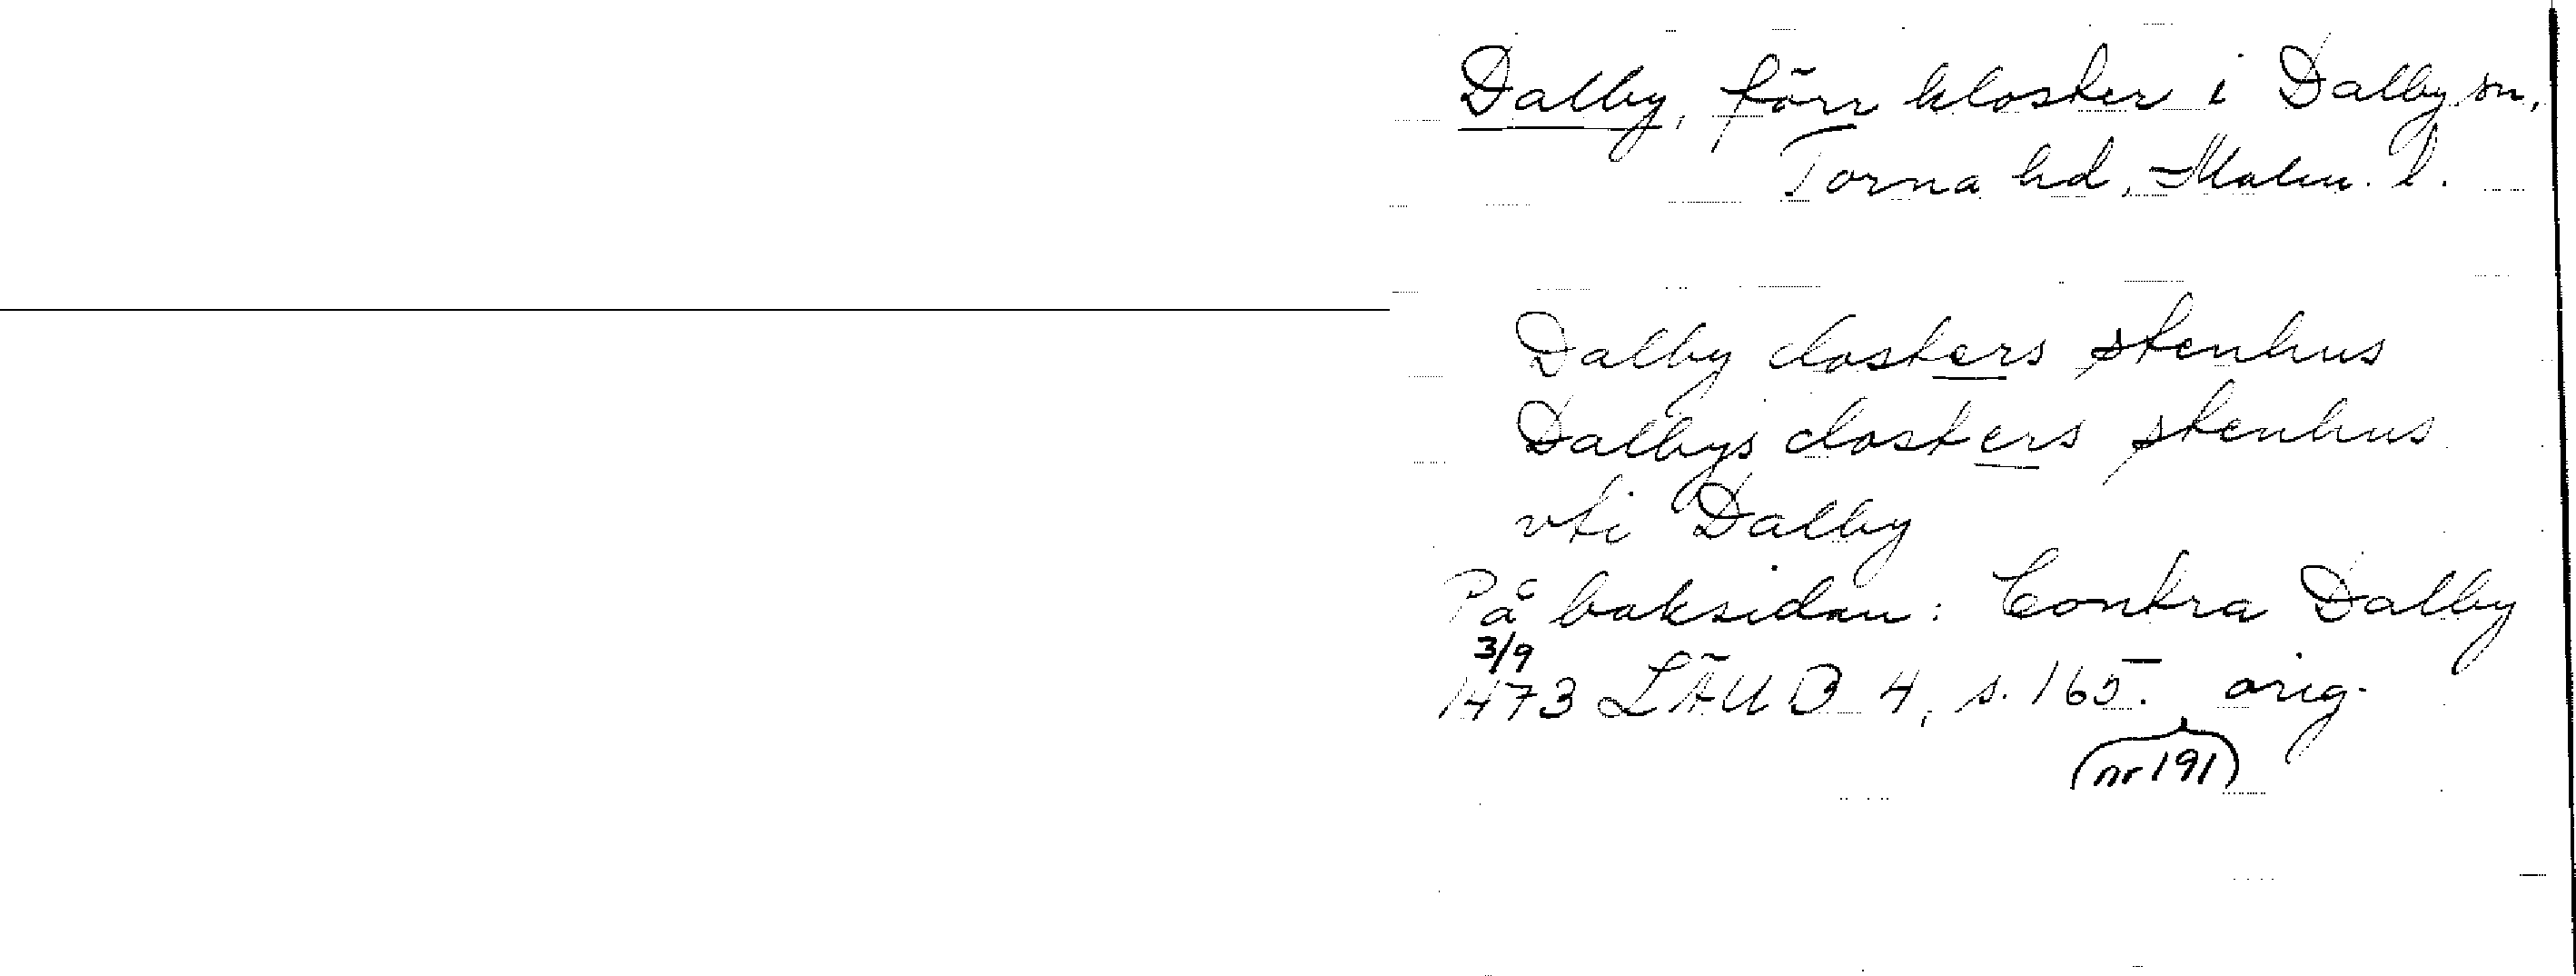 Dalby, förr kloster i Dalby sn,
Torna hd, Malm. l.
Dalby closters stenhus
Dalbys closters stenhus
vti Dalby
På baksidan: Contra Dalby
3/9
1473 LÄUB 4, s. 165. orig.
(nr 191)